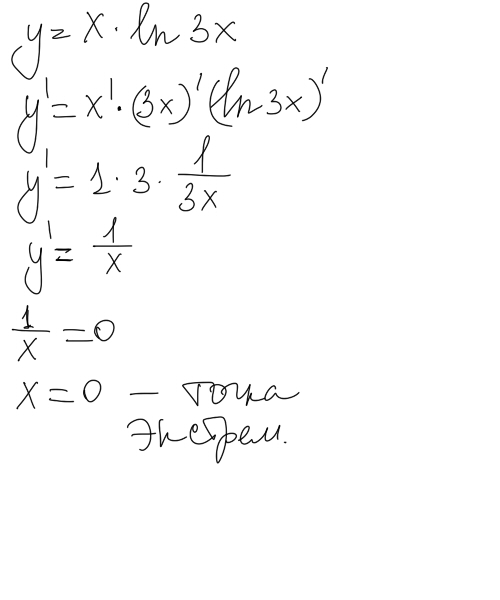 y = x · ln 3x
y' = x' · (3x)' (ln 3x)'
y' = 1 · 3 · 1/3x
y' = 1/x
1/x = 0
x = 0 — точка
экстрем.